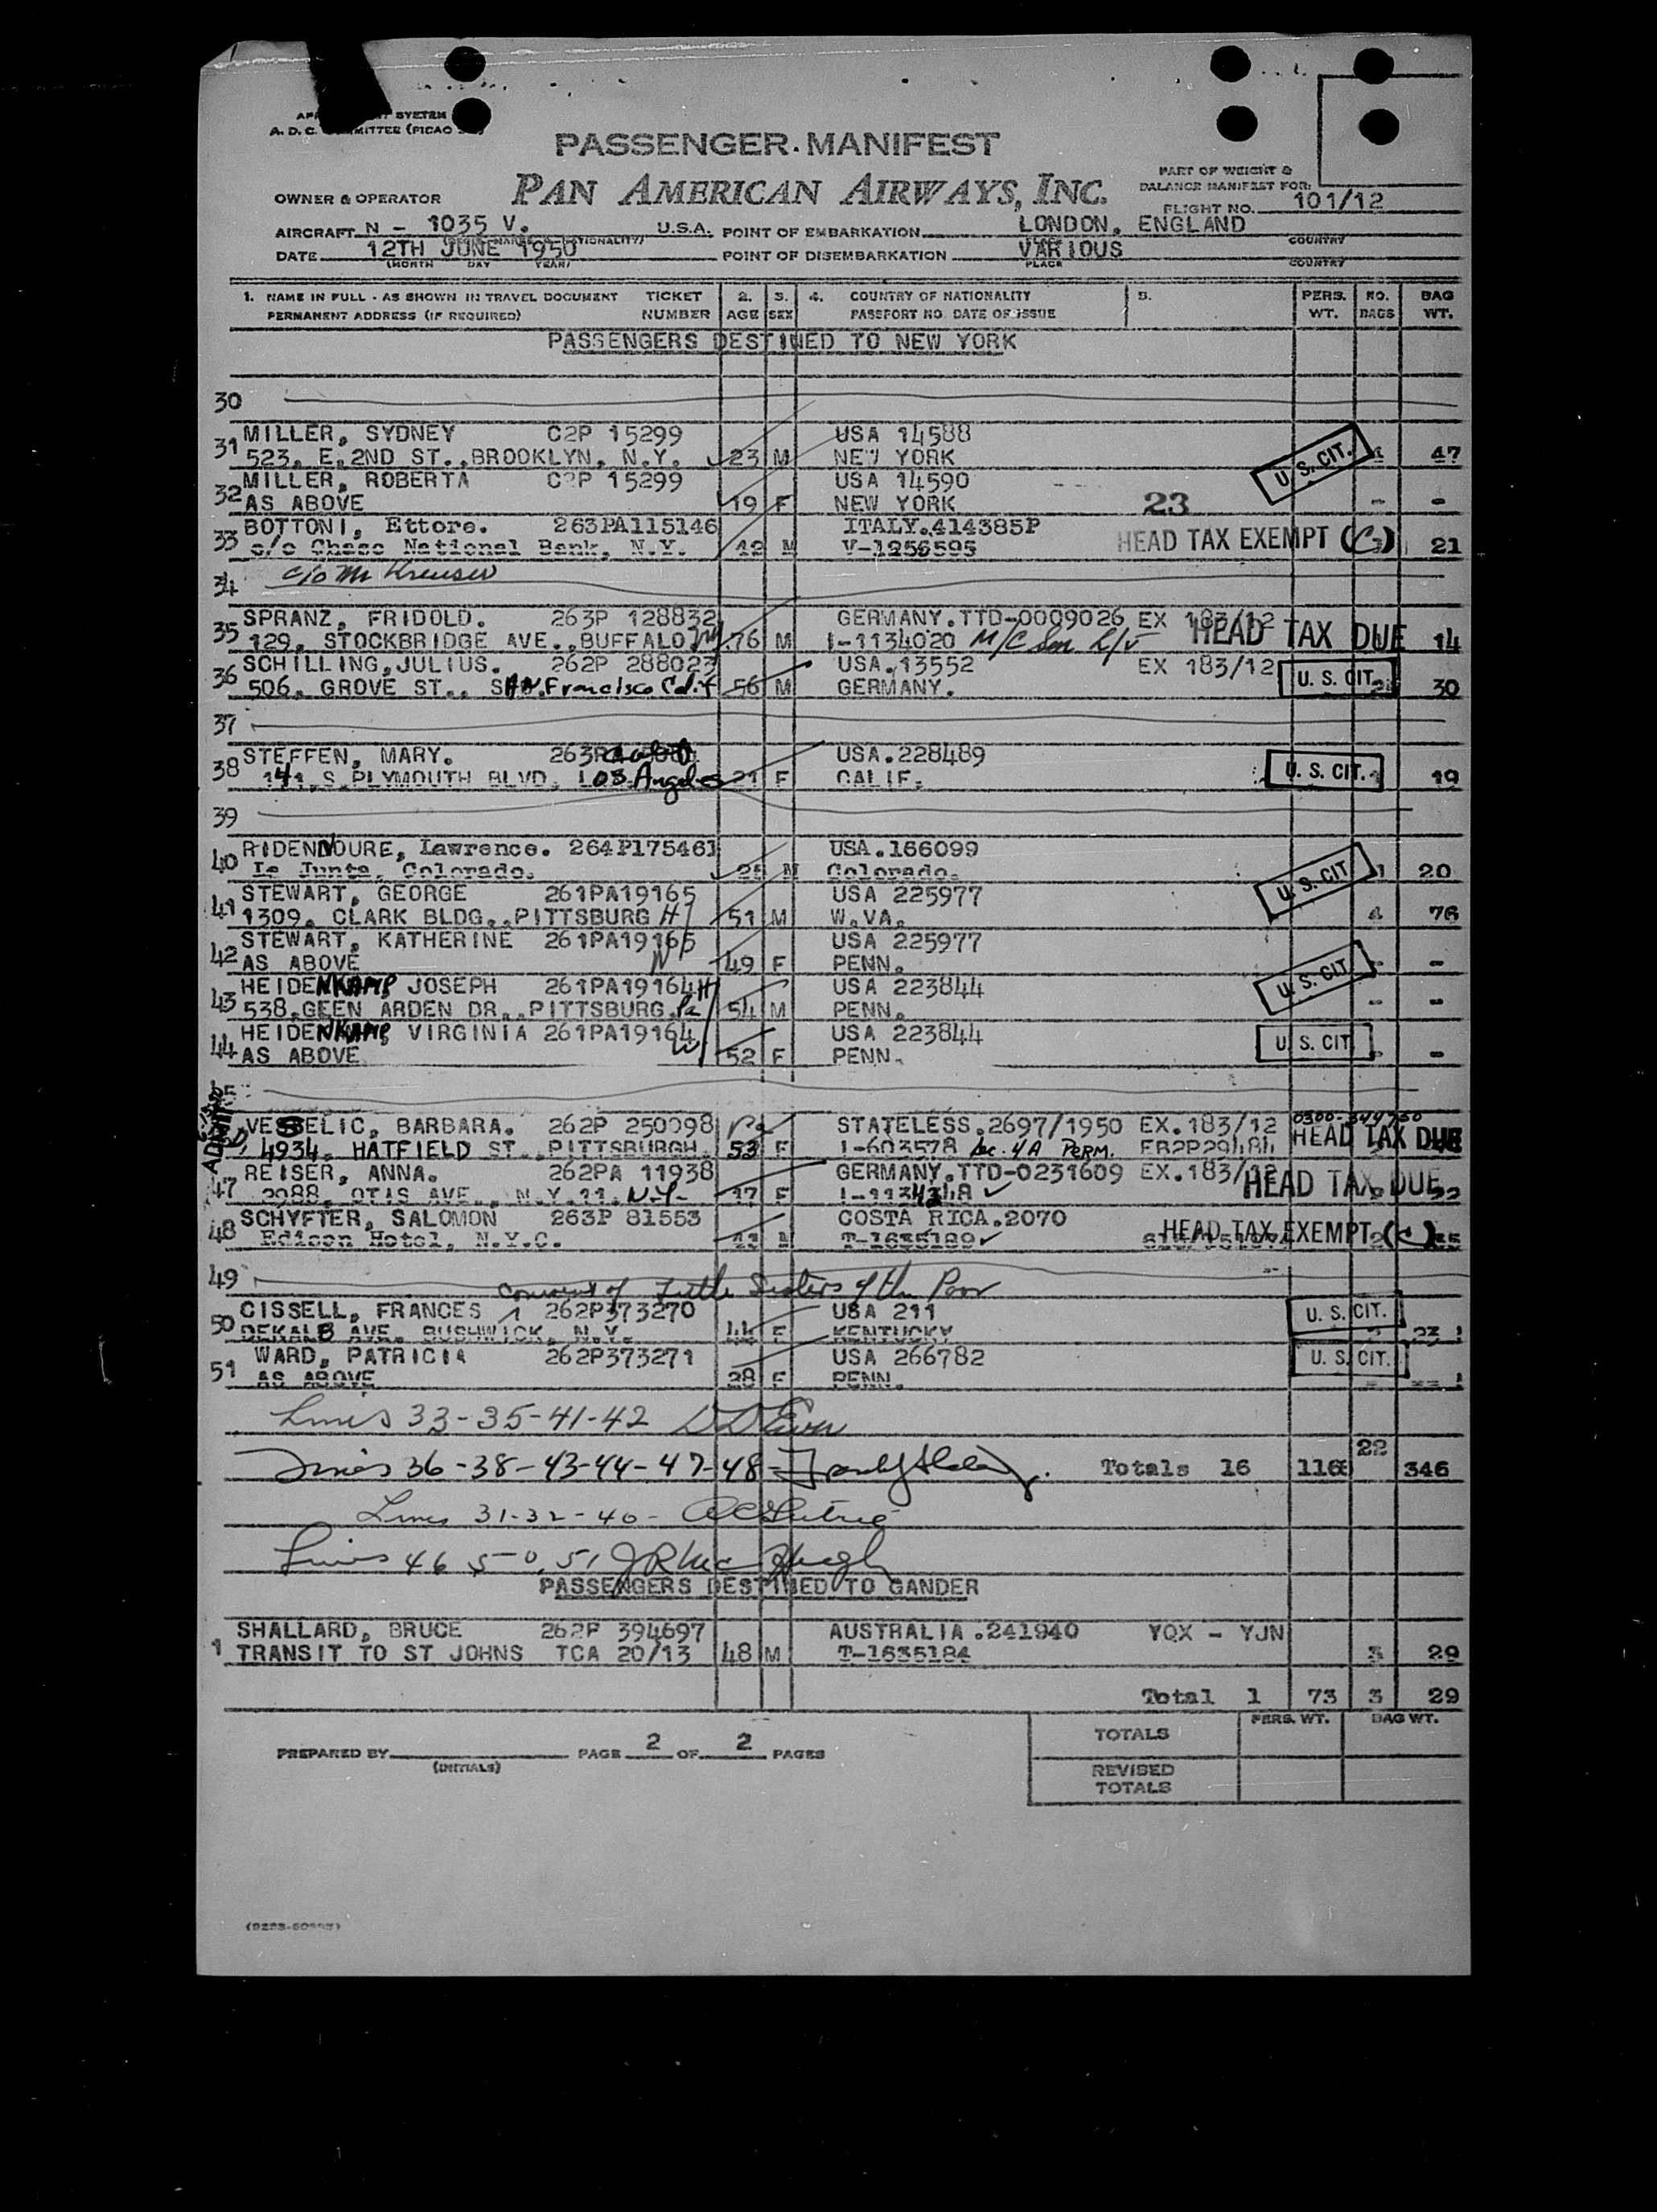 A. D. C.
PASSENGER MANIFEST
OWNER & OPERATOR PAN AMERICAN AIRWAYS, INC.
PART OF WEIGHT &
BALANCE MANIFEST FOR:
FLIGHT NO. 101/12
AIRCRAFT N - 1035 V. U.S.A. POINT OF EMBARKATION LONDON, ENGLAND
DATE 12TH JUNE 1950 POINT OF DISEMBARKATION VARIOUS
(MONTH DAY YEAR) PLACE COUNTRY
1. NAME IN FULL - AS SHOWN IN TRAVEL DOCUMENT TICKET 2. 3. 4. COUNTRY OF NATIONALITY 5. PERS. NO. BAG
PERMANENT ADDRESS (IF REQUIRED) NUMBER AGE SEX PASSPORT NO. DATE OF ISSUE WT. BAGS WT.
PASSENGERS DESTINED TO NEW YORK
30
31 MILLER, SYDNEY C2P 15299 USA 14588
523, E. 2ND ST., BROOKLYN, N.Y. 23 M NEW YORK U. S. CIT. 47
32 MILLER, ROBERTA C2P 15299 USA 14590
AS ABOVE 19 F NEW YORK 23 - -
33 BOTTONI, Ettore. 263PA115146 ITALY.414385P
c/o Chase National Bank, N.Y. 42 M V-1256595 HEAD TAX EXEMPT 21
34 c/o Mr Kreuser
35 SPRANZ, FRIDOLD. 263P 128832 GERMANY.TTD-0009026 EX 183/12
129, STOCKBRIDGE AVE., BUFFALO NY 76 M I-1134020 HEAD TAX DUE 14
36 SCHILLING, JULIUS. 262P 288023 USA.13552 EX 183/12
506, GROVE ST., SAN Francisco Calif 56 M GERMANY. U. S. CIT. 30
37
38 STEFFEN, MARY. USA.228489
141, S. PLYMOUTH BLVD, LOS Angeles 21 F CALIF. U. S. CIT. 19
39
40 RIDENOURE, Lawrence. 264P175461 USA.166099
La Junta, Colorado. 25 M Colorado. U. S. CIT 1 20
41 STEWART, GEORGE 261PA19165 USA 225977
1309, CLARK BLDG., PITTSBURG H 51 M W.VA. 4 76
42 STEWART, KATHERINE 261PA19165 USA 225977
AS ABOVE W 49 F PENN. - -
43 HEIDENKAMP, JOSEPH 261PA19164 H USA 223844
538, GEEN ARDEN DR., PITTSBURG, Pa 54 M PENN. U. S. CIT - -
44 HEIDENKAMP, VIRGINIA 261PA19164 W USA 223844
AS ABOVE 52 F PENN. U. S. CIT - -
VESELIC, BARBARA. 262P 250098 STATELESS.2697/1950 EX.183/12
4934, HATFIELD ST., PITTSBURGH. 53 F I-603578 Sec. 4A PERM. HEAD TAX DUE
47 REISER, ANNA. 262PA 11938 GERMANY.TTD-0231609 EX.183/12
2088, OTIS AVE., N.Y.11. N.Y. 17 F I-1134348 HEAD TAX DUE 22
48 SCHYFTER, SALOMON 263P 81553 COSTA RICA.2070
Edison Hotel, N.Y.C. M T-1635189 HEAD TAX EXEMPT
49 Convent of Little Sisters of the Poor
50 CISSELL, FRANCES 262P373270 USA 211
DEKALB AVE. BUSHWICK, N.Y. 44 F KENTUCKY U. S. CIT. 23
51 WARD, PATRICIA 262P373271 USA 266782
AS ABOVE 28 F PENN. U. S. CIT.
Lines 33-35-41-42
Lines 36-38-43-44-47-48 Totals 16 22 346
Lines 31-32-40-
Lines 46 50, 51 J R McHugh
PASSENGERS DESTINED TO GANDER
1 SHALLARD, BRUCE 262P 394697 AUSTRALIA.241940 YQX - YJN
TRANSIT TO ST JOHNS TCA 20/13 48 M T-1635184 3 29
Total 1 73 3 29
PERS. WT. BAG WT.
TOTALS
PREPARED BY PAGE 2 OF 2 PAGES
(INITIALS)
REVISED
TOTALS